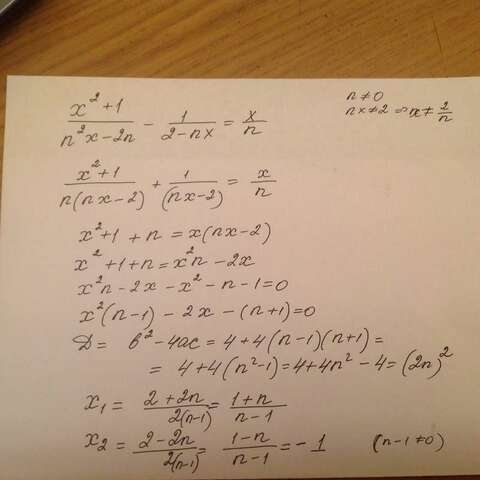 (x²+1)/(n²x-2n) - 1/(2-nx) = x/n
n≠0
nx≠2 ⇒ x≠2/n
(x²+1)/(n(nx-2)) + 1/(nx-2) = x/n
x²+1+n = x(nx-2)
x²+1+n = x²n-2x
x²n-2x-x²-n-1=0
x²(n-1)-2x-(n+1)=0
D = b²-4ac = 4+4(n-1)(n+1) =
= 4+4(n²-1) = 4+4n²-4 = (2n)²
x₁ = (2+2n)/(2(n-1)) = (1+n)/(n-1)
x₂ = (2-2n)/(2(n-1)) = (1-n)/(n-1) = -1 (n-1≠0)